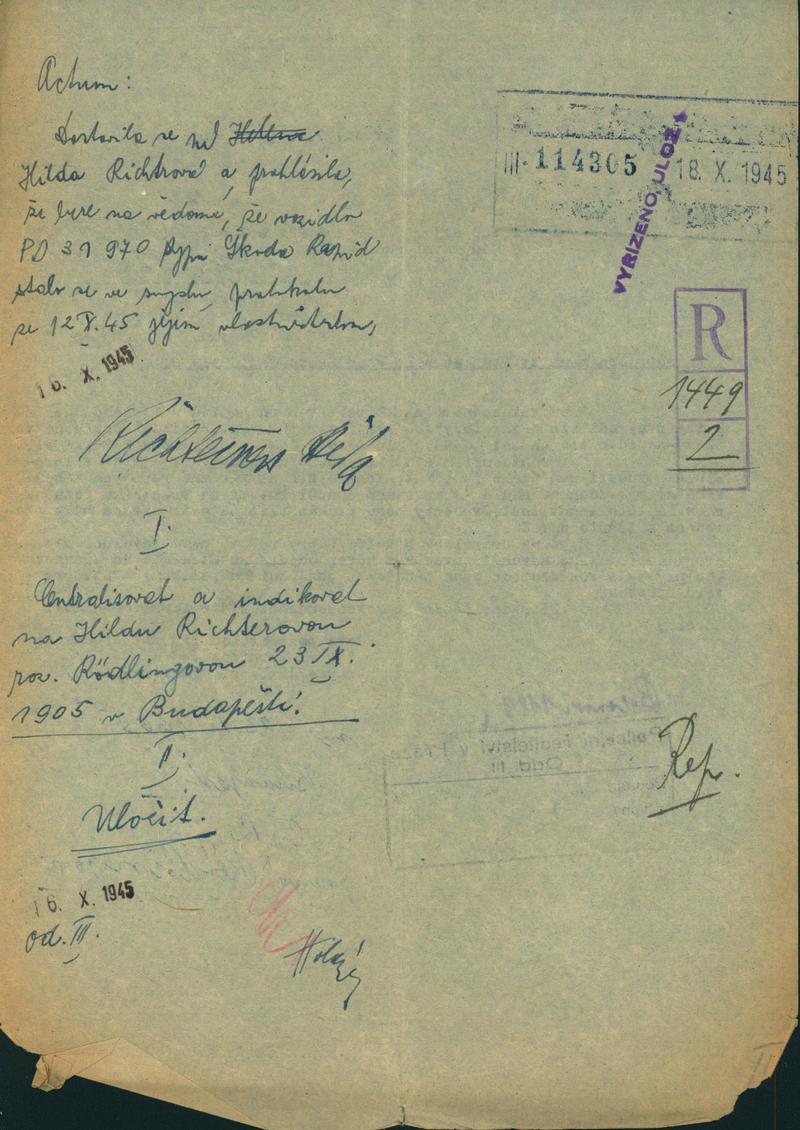 Actum:
Dostavila se
Hilda Richtrová a prohlásila,
že bere na vědomí, že vozidlo
PD 31 970 typu Škoda Rapid
stalo se ve smyslu protokolu
ze 12 X. 45 jejím vlastnictvím,
16. X. 1945
I.
Centralisovat a indikovat
na Hildu Richterovou
roz. Rödlingovou 23 IX.
1905 v Budapešti.
II.
Uložit.
16. X. 1945
od. III.
III- 114305 18. X. 1945
VYŘÍZENO, ULOŽ
R
1449
2
Rep.
Policejní ředitelství v Praze
Odd. III
II